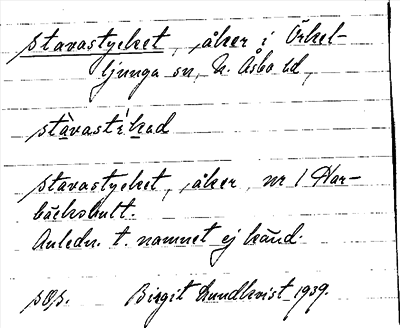 stavastycket, åker i Örkel-
ljunga sn, N. Åsbo hd,
stàvastikad
stavastycket, åker, nr 1 Har-
bäckshult.
Anledn. t. namnet ej känd.
Birgit Lundkvist 1939.